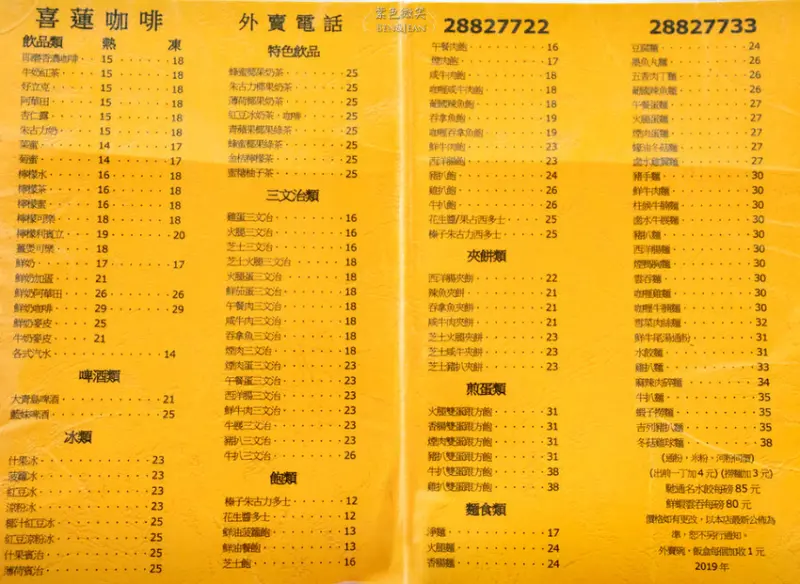 喜蓮咖啡
外賣電話
28827722
28827733
紫色微笑
BEN&JEAN
飲品類 熱 凍
15 18
牛奶紅茶 15 18
好立克 15 18
阿華田 15 18
杏仁露 15 18
朱古力奶 15 18
菜蜜 14 17
菊蜜 14 17
檸檬水 16 18
檸檬茶 16 18
檸檬蜜 16 18
檸檬可樂 18 18
檸檬利賓立 19 20
薑煲可樂 18
鮮奶 17 17
鮮奶加蛋 21
鮮奶阿華田 26 26
鮮奶咖啡 29 29
鮮奶麥皮 25
牛奶麥皮 21
各式汽水 14
啤酒類
大青島啤酒 21
藍妹啤酒 25
冰類
什果冰 23
菠蘿冰 23
紅豆冰 23
涼粉冰 23
椰汁紅豆冰 25
紅豆涼粉冰 25
什果賓治 25
薄荷賓治 25
特色飲品
蜂蜜椰果奶茶 25
朱古力椰果奶茶 25
薄荷椰果奶茶 25
紅豆冰奶茶、咖啡 25
青蘋果椰果綠茶 25
蜂蜜椰果綠茶 25
金桔檸檬茶 25
蜜糖柚子茶 25
三文治類
雞蛋三文治 16
火腿三文治 16
芝士三文治 16
芝士火腿三文治 18
火腿蛋三文治 18
鮮茄蛋三文治 18
午餐肉三文治 18
咸牛肉三文治 18
吞拿魚三文治 18
煙肉三文治 18
煙肉蛋三文治 23
午餐蛋三文治 23
西洋腸三文治 23
鮮牛肉三文治 23
牛脷三文治 23
豬扒三文治 23
牛扒三文治 26
飽類
榛子朱古力多士 12
花生醬多士 12
鮮油菠蘿飽 13
鮮油餐飽 13
芝士飽 16
午餐肉飽 16
煙肉飽 17
咸牛肉飽 18
咖喱咸牛肉飽 18
葡國辣魚飽 18
吞拿魚飽 19
咖喱吞拿魚飽 19
鮮牛肉飽 23
西洋腸飽 23
豬扒飽 24
雞扒飽 26
牛扒飽 26
花生醬/果占西多士 25
榛子朱古力西多士 25
夾餅類
西洋腸夾餅 22
辣魚夾餅 21
吞拿魚夾餅 21
咸牛肉夾餅 21
芝士火腿夾餅 23
芝士咸牛夾餅 23
芝士豬扒夾餅 23
煎蛋類
火腿雙蛋跟方飽 31
香腸雙蛋跟方飽 31
煙肉雙蛋跟方飽 31
豬扒雙蛋跟方飽 31
牛扒雙蛋跟方飽 38
雞扒雙蛋跟方飽 38
麵食類
淨麵 17
火腿麵 24
香腸麵 24
豆腐麵 24
墨魚丸麵 26
五香肉丁麵 26
葡國辣魚麵 26
午餐蛋麵 27
火腿蛋麵 27
煙肉蛋麵 27
蠔油冬菇麵 27
鹵水雞翼麵 27
豬手麵 30
鮮牛肉麵 30
柱候牛腩麵 30
鹵水牛脷麵 30
豬扒麵 30
西洋腸麵 30
煙鴨胸麵 30
雲吞麵 30
咖喱雞麵 30
咖喱牛腩麵 30
雪菜肉絲麵 32
鮮牛尾湯通粉 31
水餃麵 31
雞扒麵 33
麻辣肉碎麵 34
牛扒麵 35
蝦子撈麵 35
吉列豬扒麵 35
冬菇雞球麵 38
(通粉，米粉，河粉同價)
(出前一丁加 4 元) (撈麵加 3 元)
馳過名水餃每磅 85 元
鮮蝦雲吞每磅 80 元
價格如有更改，以本店最新公佈為
準，恕不另行通知。
外賣碗，飯盒每個加收 1 元
2019 年